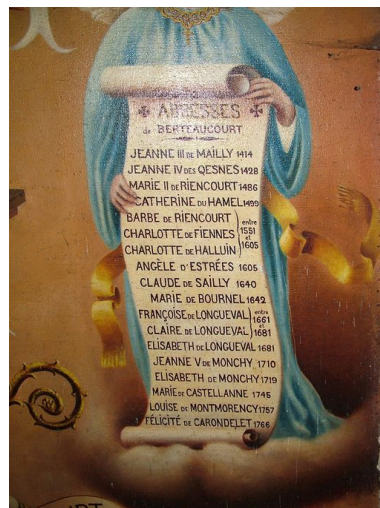 ✠ ABBESSES ✠
de BERTEAUCOURT
JEANNE III de MAILLY 1414
JEANNE IV DES QESNES 1428
MARIE II de RIENCOURT 1486
CATHERINE DU HAMEL 1499
BARBE DE RIENCOURT
CHARLOTTE DE FIENNES
CHARLOTTE DE HALLUIN
entre
1551
et
1605
ANGÈLE D'ESTRÉES 1605
CLAUDE DE SAILLY 1640
MARIE DE BOURNEL 1642
FRANÇOISE DE LONGUEVAL
CLAIRE DE LONGUEVAL
entre
1661
et
1681
ELISABETH DE LONGUEVAL 1681
JEANNE V DE MONCHY 1710
ELISABETH DE MONCHY 1719
MARIE DE CASTELLANNE 1745
LOUISE DE MONTMORENCY 1757
FÉLICITÉ DE CARONDELET 1766